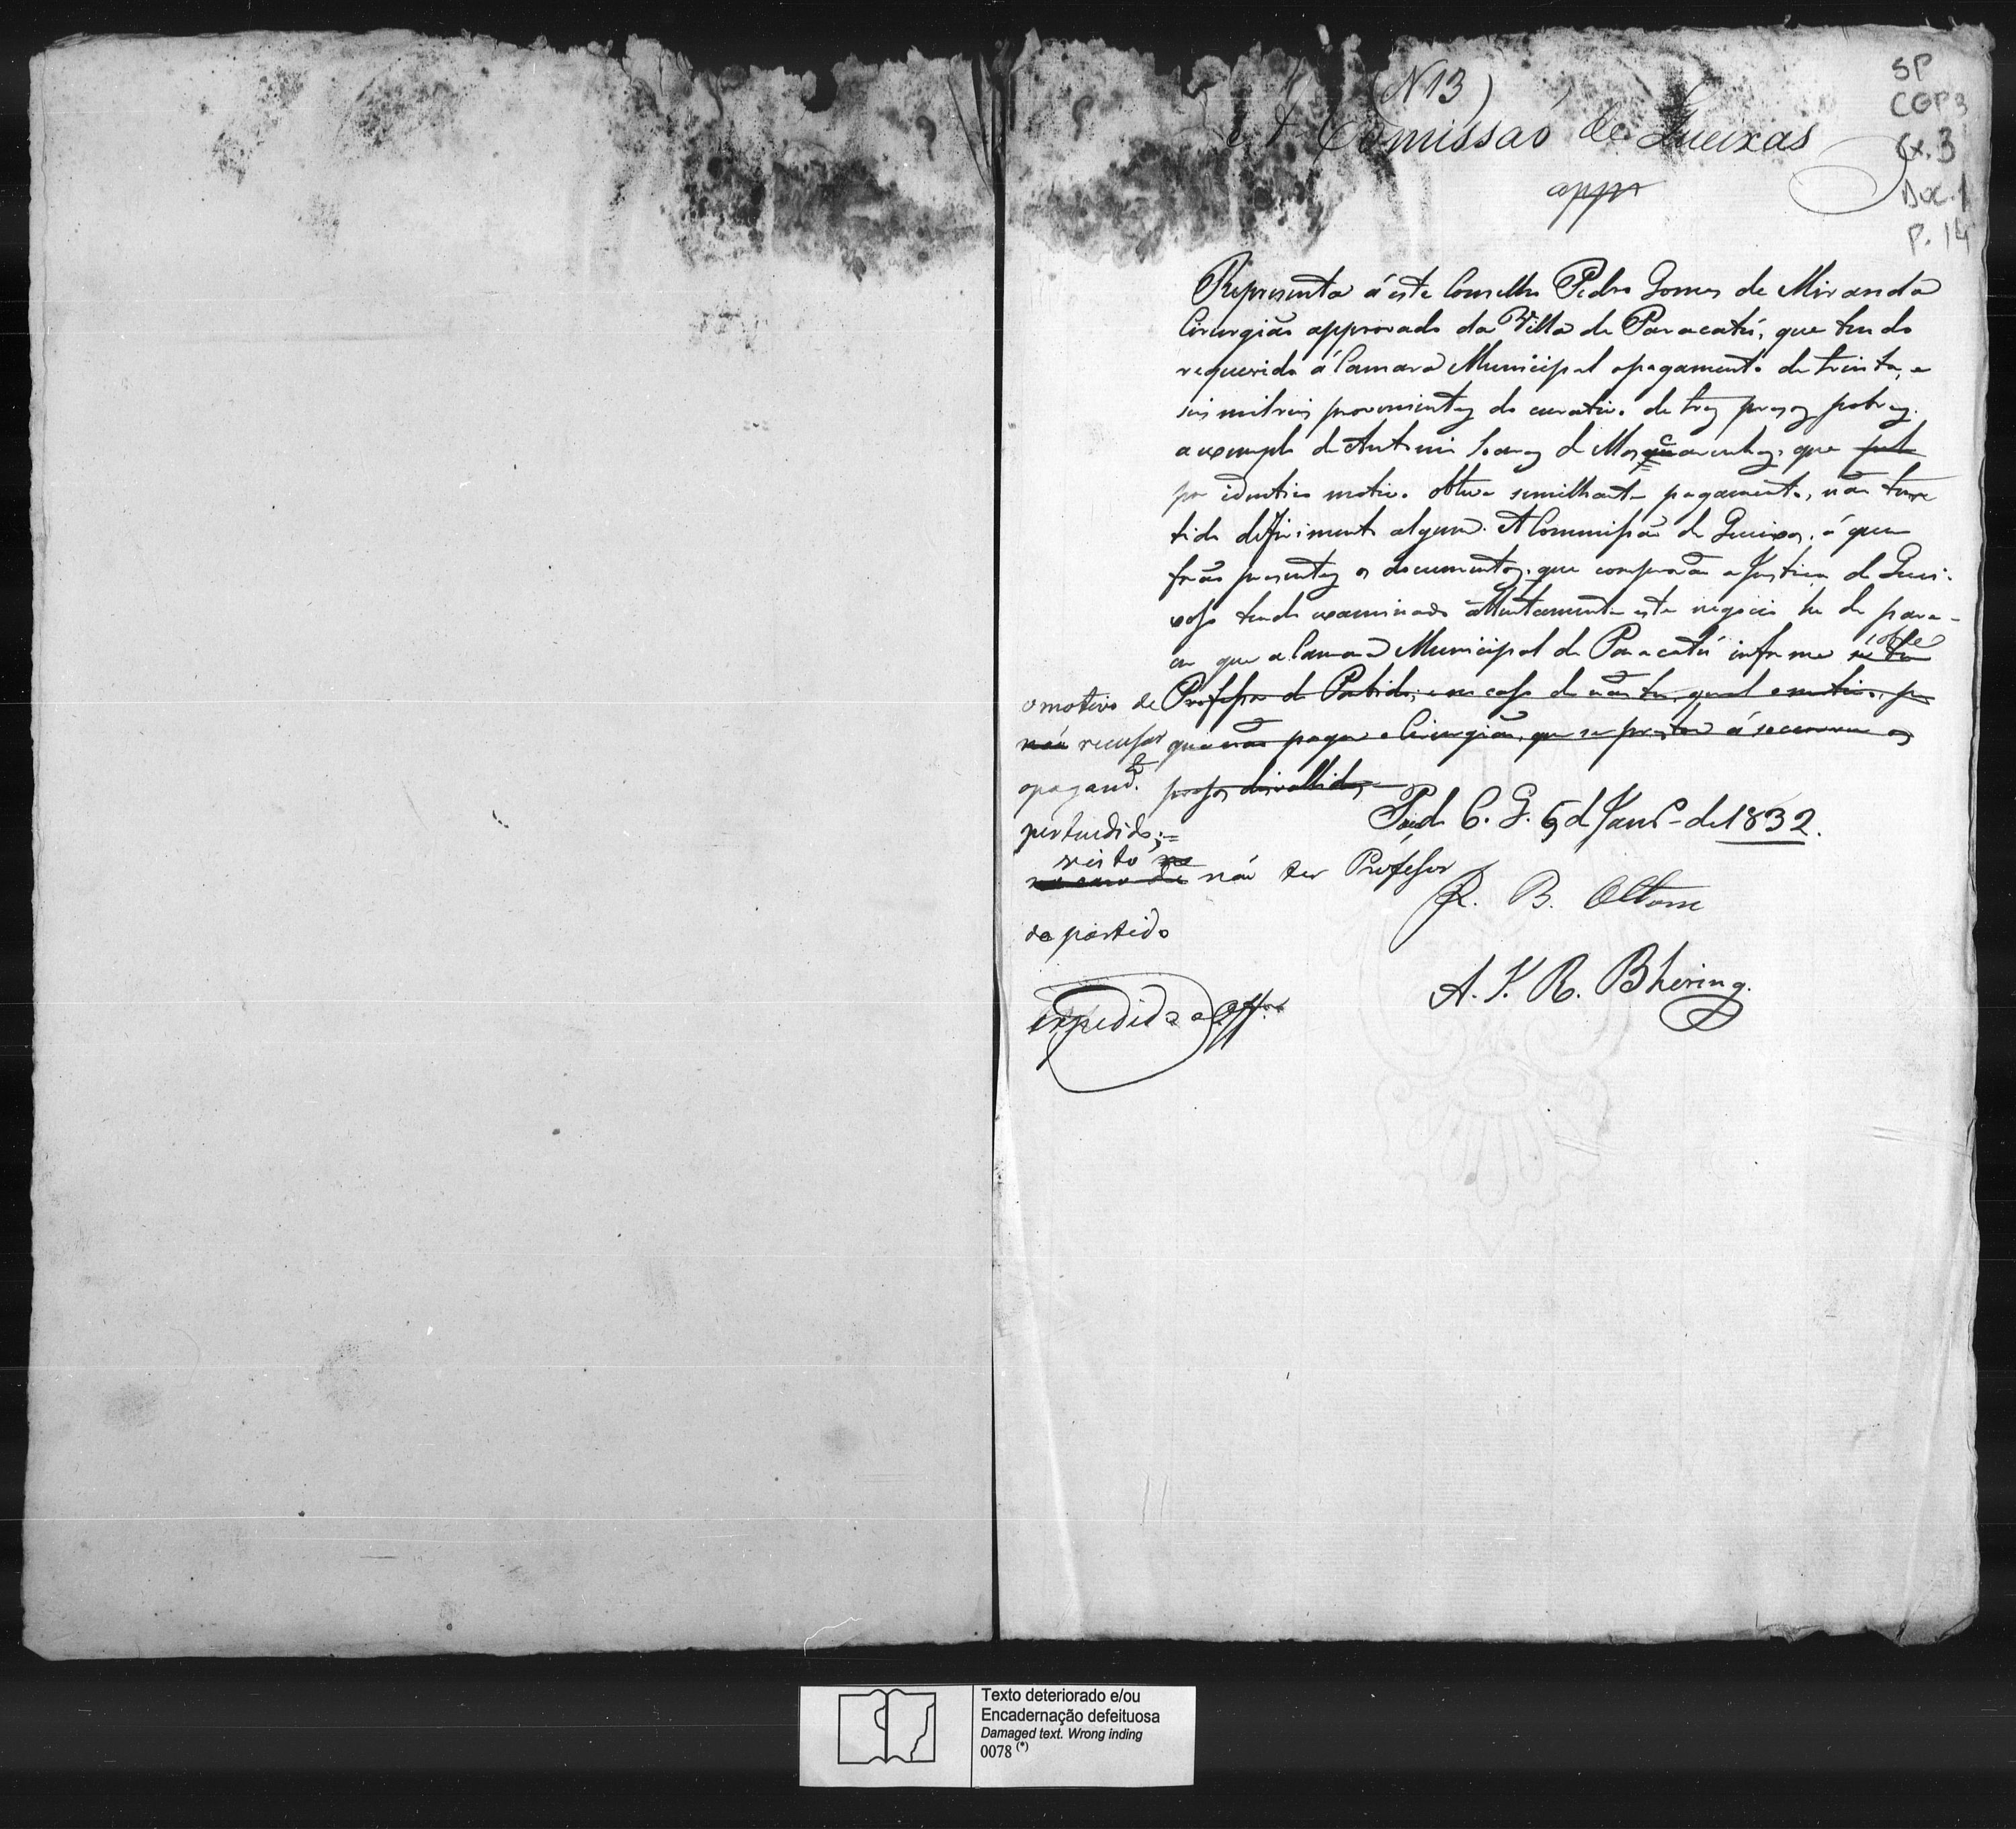 (N 13)
SP
CGP3
Cx. 3
Doc. 1
P. 14
A Comissaõ de Queixas
app.
Representa á este Conselho Pedro Gomes de Miranda
Cirurgiaõ approvado da Villa de Paracatú, que tendo
requerido á Camara Municipal o pagamento de trinta, e
seis mil reis provenientes do curativo de tres presos pobres.
a exemplo de Antonio Soares de Mascarenhas, que
por identico motivo obteve semilhante pagamento, naõ teve
tido defirimento algum. A Commissaõ de Queixas, á quem
foraõ presentes os documentos, que comprovaõ a Justiça do Quei-
xoso tendo examinado attentamente este negocio he de pare-
cer que a Camara Municipal de Paracatú informe se tem sobre
o motivo de Professor de Partido, e no caso de naõ ter, qual o motivo, por
naó recusar que naõ paga o Cirurgiaõ, que se prestou á soccorrer os
o pagamd.to presos desvallidos
pertendido;=
Paço do C. G. 5 de Janr.o de 1832.
visto no
no caso de naó ter Professor
de partido
R. B. Ottoni
A. J. R. Bhering.
expedida a off.
Texto deteriorado e/ou
Encadernação defeituosa
Damaged text. Wrong inding
0078 (*)